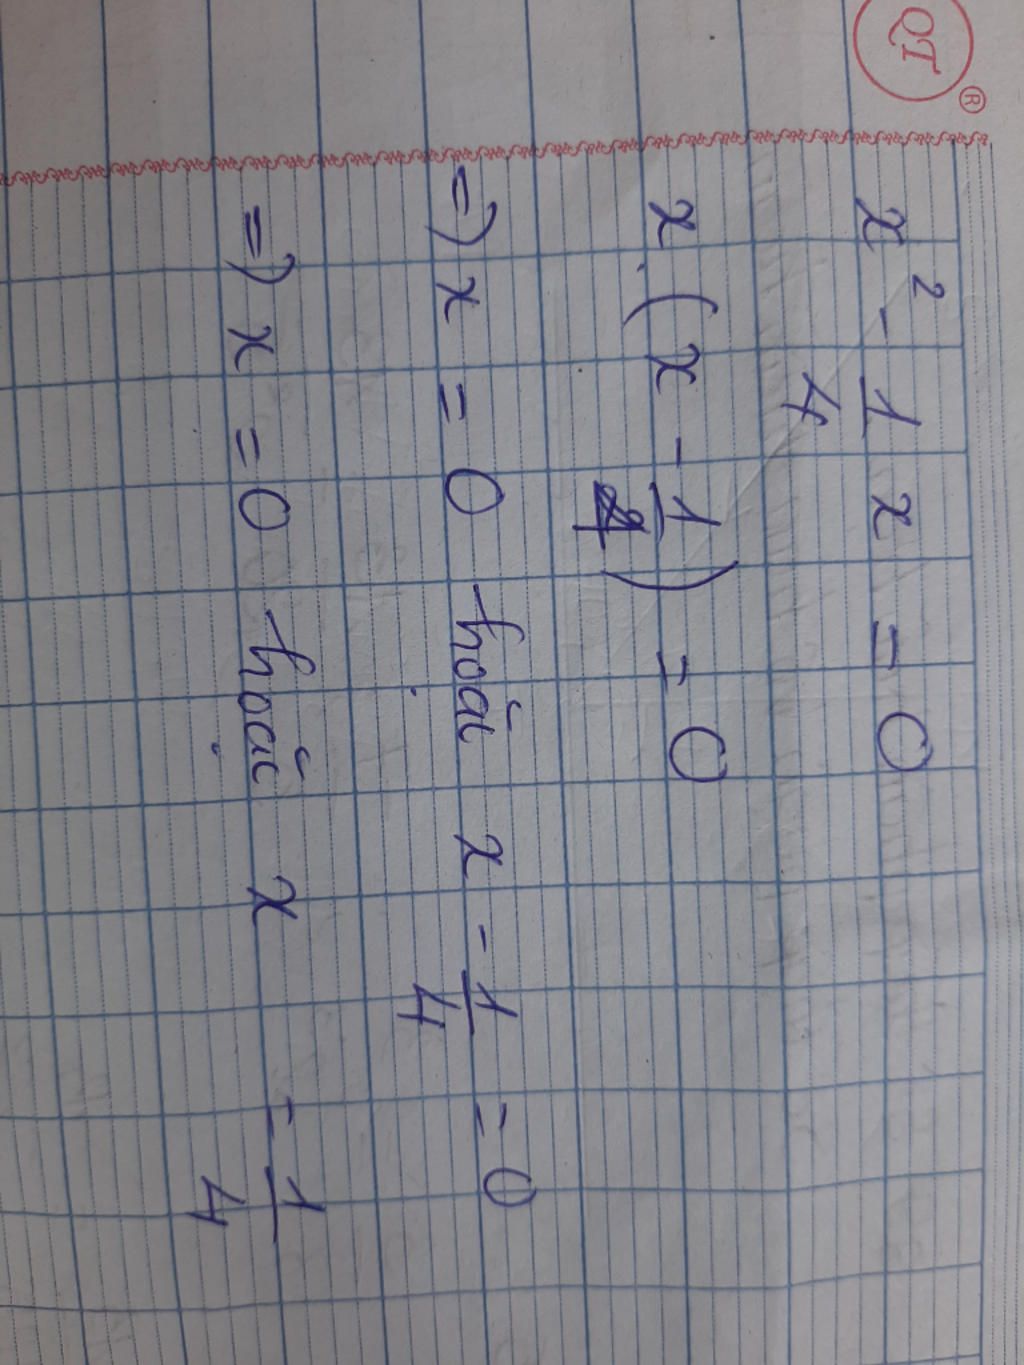 QT ®
x² - 1/4 x = 0
x . (x - 1/4) = 0
=) x = 0 hoặc x - 1/4 = 0
=) x = 0 hoặc x = 1/4